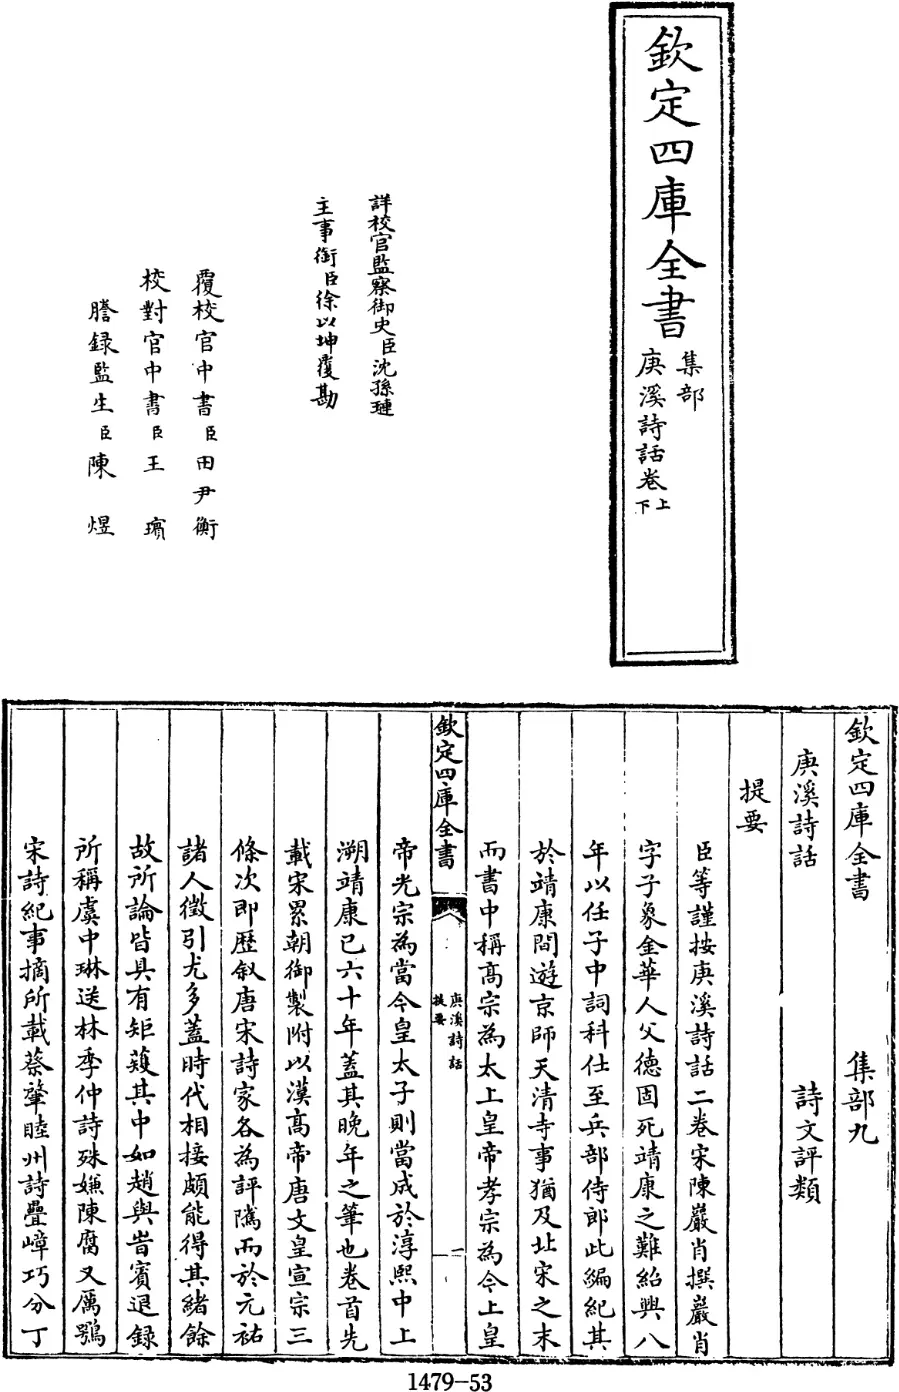 欽定四庫全書
集部
庚溪詩話卷上下
詳校官監察御史臣沈孫璉
主事銜臣徐以坤覆勘
覆校官中書臣田尹衡
校對官中書臣王 璸
謄錄監生臣陳 煜
欽定四庫全書 集部九
庚溪詩話 詩文評類
提要
臣等謹按庚溪詩話二卷宋陳巖肖撰巖肖
字子象金華人父德固死靖康之難紹興八
年以任子中詞科仕至兵部侍郎此編紀其
於靖康間遊京師天清寺事猶及北宋之末
而書中稱高宗為太上皇帝孝宗為今上皇
欽定四庫全書
庚溪詩話
提要
一
帝光宗為當今皇太子則當成於淳熙中上
溯靖康已六十年蓋其晚年之筆也卷首先
載宋累朝御製附以漢高帝唐文皇宣宗三
條次即歷敘唐宋詩家各為評隲而於元祐
諸人徵引尤多蓋時代相接頗能得其緒餘
故所論皆具有矩蒦其中如趙與旹賓退録
所稱虞中琳送林季仲詩殊嫌陳腐又厲鶚
宋詩紀事摘所載蔡肇睦州詩疊嶂巧分丁
1479-53